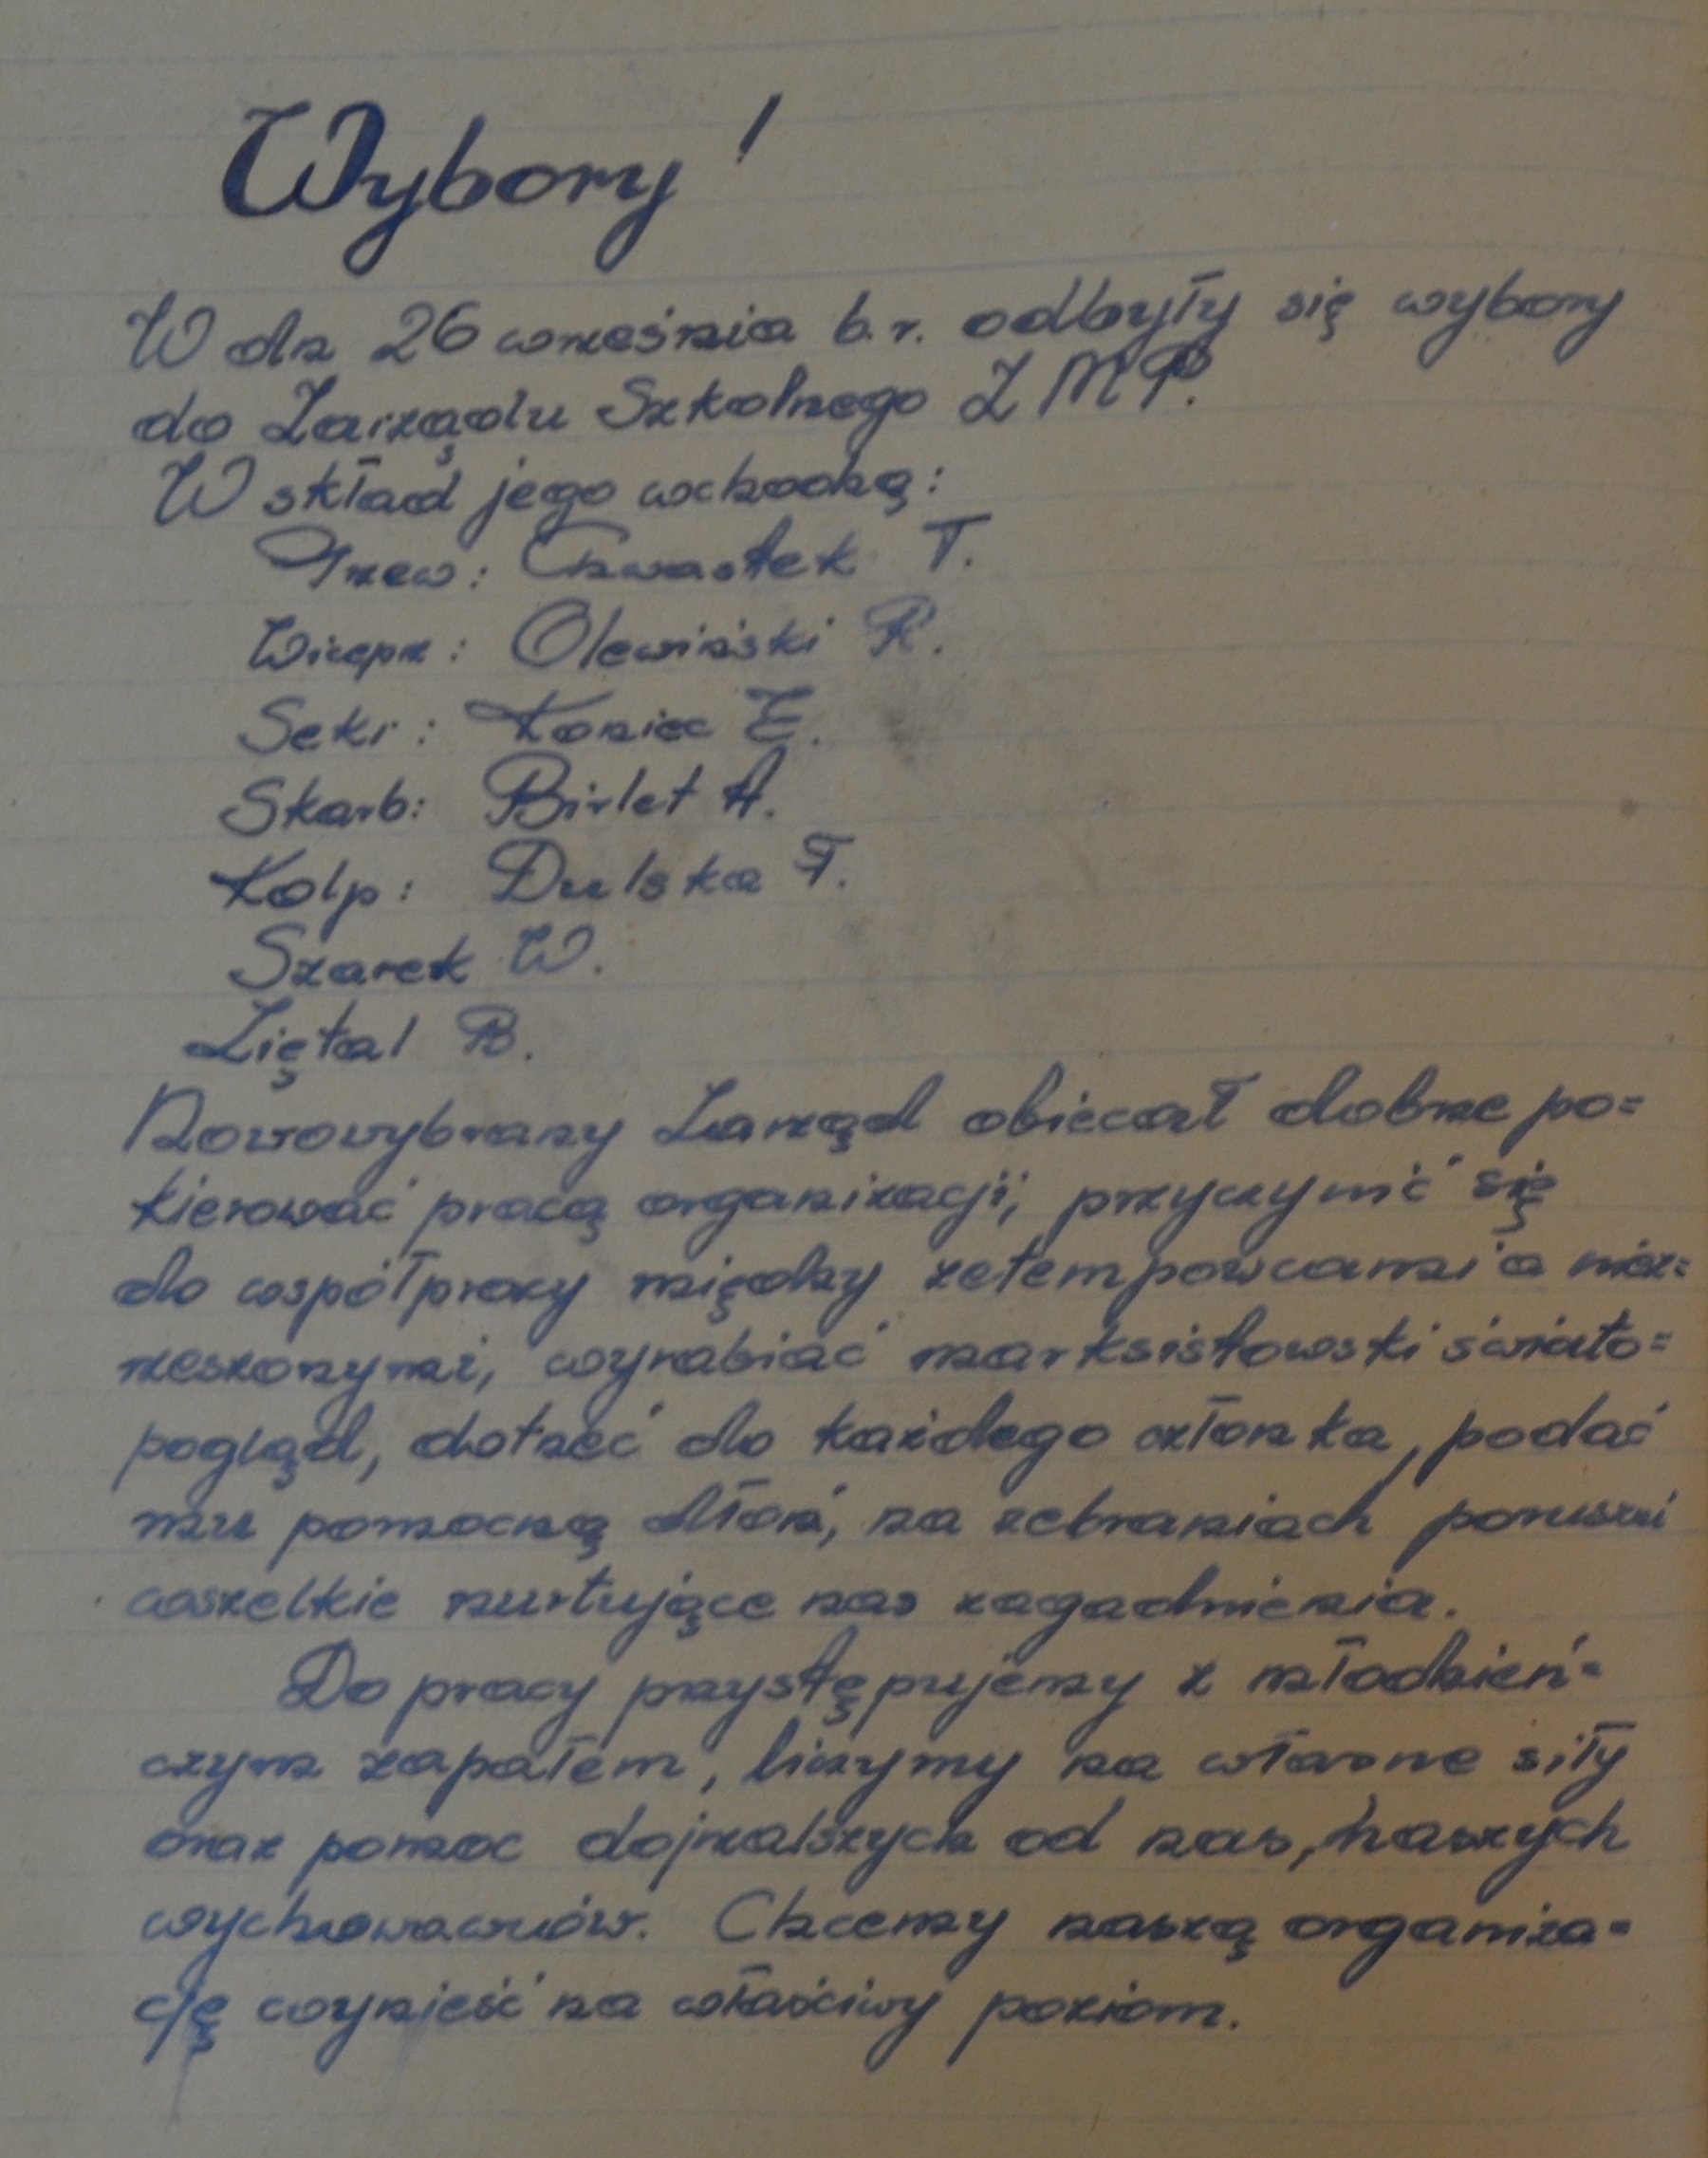 Wybory!
W dn 26 września b.r. odbyły się wybory
do Zarządu Szkolnego ZMP.
W skład jego wchodzą:
Przew: Chwastek T.
Wiceprz: Olewiński R.
Sekr: Koniec E.
Skarb: Birlet A.
Kolp: Dulska T.
Szarek W.
Ziętal B.
Nowowybrany Zarząd obiecał dobrze po=
kierować pracą organizacji, przyczynić się
do współpracy między zetempowcami a niez=
rzeszonymi, wyrabiać marksistowski świato=
pogląd, dotrzeć do każdego członka, podać
mu pomocną dłoń, na zebraniach
wszelkie nurtujące nas zagadnienia.
Do pracy przystępujemy z młodzień=
czym zapałem, liczymy na własne siły
oraz pomoc dojrzalszych od nas, naszych
wychowawców. Chcemy naszą organiza=
cję wynieść na właściwy poziom.